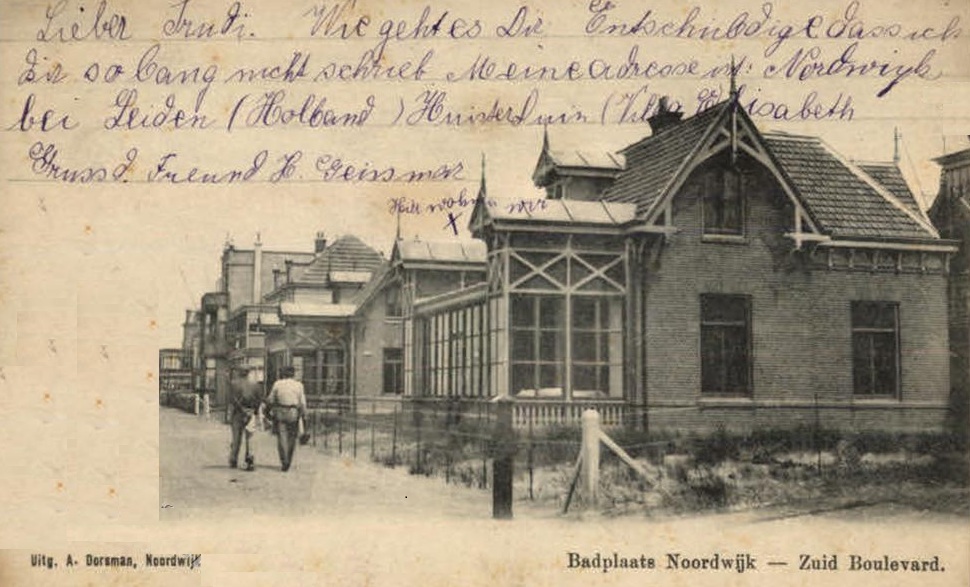 Lieber Trudi. Wie geht es Dir Entschuldige dass ich
dir so lang nicht schrieb Meine adresse ist: Nordwijk
bei Leiden (Holland) Huisterduin (Villa Elisabeth
Gruss d. Freund H. Geissmar
Hier wohnen wir
X
Uitg. A. Dorsman, Noordwijk
Badplaats Noordwijk — Zuid Boulevard.